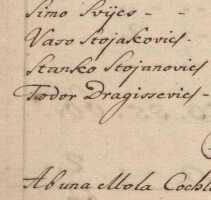 Simo Svijcs - -
Vaso Stojakovics -
Stanko Stojanovics
Todor Dragissevics -
Abuna Mola Cochl